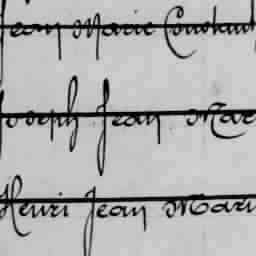 Jean Marie Constant
Joseph Jean Mar
Henri Jean Mari